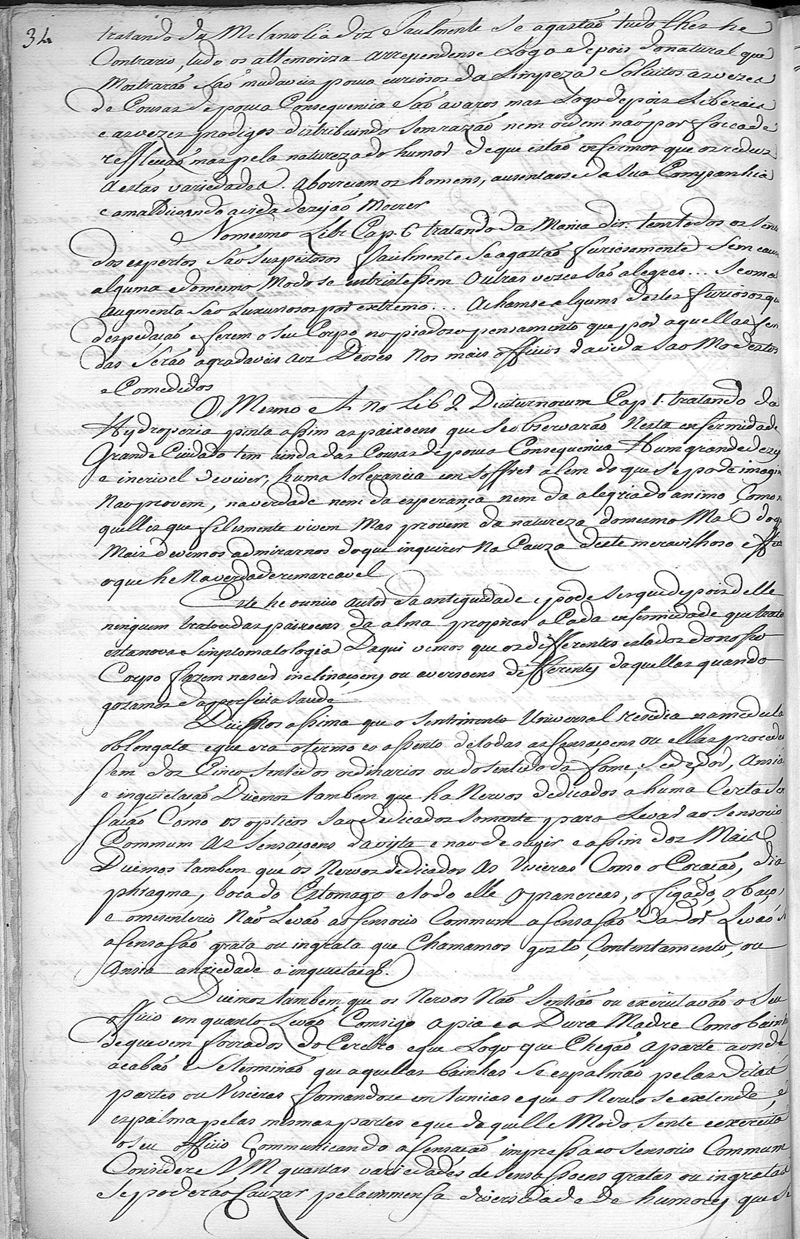 34
tratando da Melancolia diz e facilmente se agastão tudo lhes he
Contrario, tudo os attemoriza arrependense Logo depois do natural que
Mostrarão são mudaveis pouco curiosos da Limpeza Solicitos as vezes
de Cousas de pouca Consequencia e São avaros mas Logo depois Liberais
e as vezes prodigos distribuindo sem razão nem ordem não por força de
reflexão mas pela natureza do humor de que estão infermos que os reduz
a estas variedades. Aborrecem os homens, ausentãose da Sua Companhia
e amaldiçoando a vida dezejão Morrer
No mesmo Libr. Cap. 6 tratando da Mania diz. tem todos os sen
dos espertos São Suspeitosos facilmente se agastão furiosamente Sem cauza
alguma e do mesmo Modo se entristessem Outras vezes são alegres ... Se o mal
augmenta são Luxuriosos por extremo ... Achamse alguns destes furiosos que
despedação e ferem o seu Corpo no piadozo pensamento que por aquellas feri
das Serão agradaveis aos Deoses Nos mais officios da vida são Modestos
e Comedidos
O Mesmo A. no Lib. 2 Diuturnorum Cap. 1. tratando da
Hydropezia pinta assim as paixoens que se observarão Nesta enfermidade
Grande Cuidado tem ainda das Cousas de pouca Consequencia Hum grande dezejo
e incrivel de viver, huma tolerancia em soffrer alem do que se pode imaginar
Não provem, na verdade nem da esperança nem da alegria do animo Como n
quelles que felismente vivem Mas provem da natureza do mesmo Mal do q
Mais devemos admirarnos do que inquirir Na Cauza deste meravilhoso effeito
o que he Na verdade remarcavel
Este he o unico autor da antiguidade e pode ser que depois delle
ninguem tratou das paixoens da alma proprias a Cada enfermidade que trata
esta nova Simptomatologia Daqui vemos que os differentes estados do nosso
Corpo fazem nascer inclinaçoens ou aversoens differentes daquellas quando
gozamos da perfeita saude
Dissemos assima que o Sentimento Universal rezedia na medula
oblongata e que era o termo e o assento de todas as sensaçoens ou ellas procedes
sem dos Cinco Sentidos ordinarios ou do sentido da fome, Sede, dor, Ansia
e inquietação Dicemos tambem que ha Nervos dedicados a huma Certa sen
sação Como os opticos São dedicados somente para Levar ao Sensorio
Commum as Sensaçoens da vista e nao de ouvir e assim dos Mais
Dicemos tambem que os Nervos dedicados as Visceras Como o Coração, dia
phragma, boca do Estomago e todo elle o pancreas, o figado, o baço,
e o mesenterio Não Levão ao sensorio Commum a sensassão da dor Levão
a sensassão grata ou ingrata que Chamamos gosto, Contentamento, ou
Ansia anxiedade e inquietação.
Dicemos tambem que os Nervos Não Sentião ou exercitavão o Seu
officio em quanto Levão Comsigo a pia e a Dura Madre Como bainh
de que vem forrados do Cerebro e que Logo que Chegão a parte aonde
acabão e Se terminão que aquellas bainhas se espalmão pelas Ditas
partes ou Visceras formandose em tunicas e que o Nervo se extende, e
espalma pelas mesmas partes e que daquelle Modo Sente e exercita
o seu officio Communicando a sensação impressa ao Sensorio Commum
Considere V M quantas variedades de sensassoens gratas ou ingratas
Se poderão Cauzar pela immensa diversidade de humores que